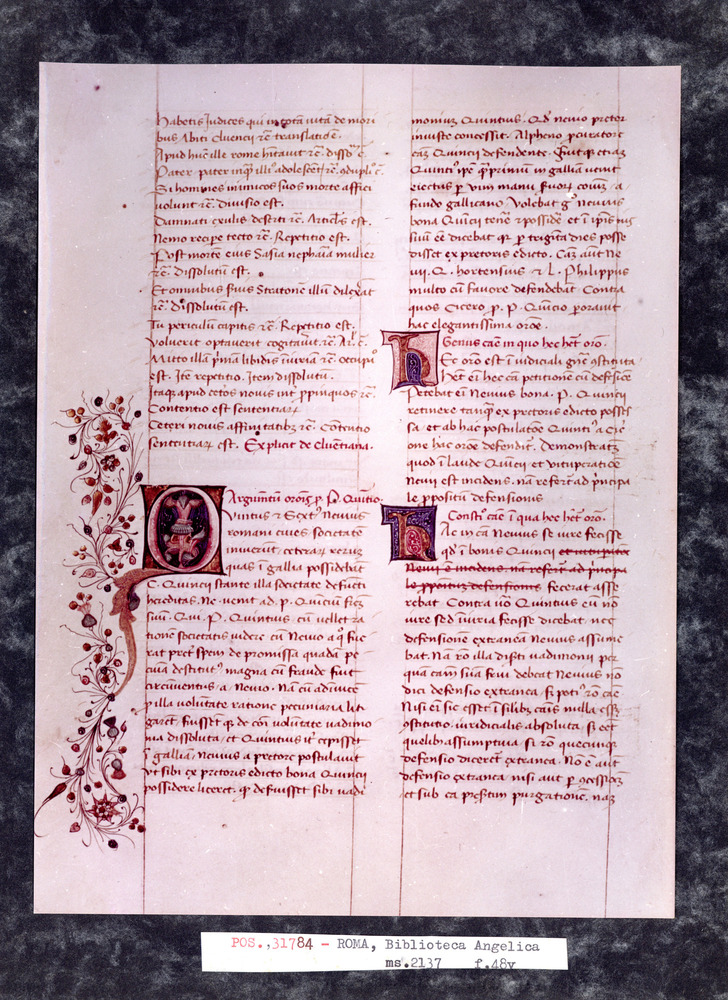 habetis Judices qui in tota uita de mori
bus Abiti Cluencij rẽ translatiõ ẽ.
Apud hũc ille rome hitauit rẽ. disso͂ ẽ.
Pater pater inq̃ illi adolescẽt rẽ.
Si homines inimicos suos morte affici
uolunt rẽ. Diuisio est.
Damnati exulis deserti rẽ. est.
Nemo recipe tecto rẽ. Repetitio est.
Post mortẽ eius Sasia nepharia mulier
rẽ. dissolutũ est.
Et omnibus eius Stratonẽ illũ
rẽ. dissolutũ est.
Tu periculũ capitis rẽ. Repetitio est.
Voluerit optauerit cogitauit rẽ.
Mitto illã primã libidis iniuriã rẽ.
est. Itẽ repetitio. Item dissolutũ.
Itaq̃ apud cetos nouis int̃ ꝓpinquos rẽ.
Contentio est sententiarꝝ
Ceteri nouis affinitatibꝫ rẽ. Cõtentio
sententiarꝝ est. Explicit de Cluẽtiana.
Argumẽtũ orõnis ꝓ P. Quitio.
Quintus et Sext⁹ Neuius
romani ciues societatẽ
inierũt, ceterarꝝ rerum
quas ĩ gallia possidebãt
C. Quincij stante illa societate defũcti
hereditas. Ne uenit ad. p. Quĩciũ
suũ. Qui. P. Quintius cũ uellet ra
tionẽ societatis uidere cũ Neuio a q̃
rat p̃ter spem de promissa quadã pe
cũia destitut⁹ magna cũ fraude fuit
circũuentus a Neuio. Nã cũ
ꝑ illa uolũtatẽ ratione pecuniaria liti
garẽt, fuisset q̃ de cõi uolũtate uadimo
nia dissoluta, et Quintius it̃ cepisset
ĩ galliã, Neuius a pretore postulauit
ut sibi ex pretoris edicto bona Quincij
possidere liceret. q̃ defuisset sibi uadi
moniuꝫ Quintius. Qd̃ neuio pretor
iniuste concessit. Alpheno ꝓcuratore
cãꝫ Quincij defendente. Fuit q̃ etiaꝫ
Quinti⁹ ip̃e q̃ primũ in galliã uenit
eiectus ꝑ uim manu seruoꝝ cõiũꝫ a
fundo gallicano. Volebat g̃ Neuius
bona Quĩcij tenẽ ⁊ possidẽ et
suũ ẽe dicebat q̃ ꝑ trigĩta dies posse
disset ex pretoris edicto. Cãꝫ aut̃ Ne
uij. Q. hortensius ⁊ L. Philippus
multo cũ fauore defendebãt. Contra
quos Cicero ꝓ. P. Quĩcio perorauit
hac elegantissima orõe.
Genus cãe in quo hec het̃ orõ.
Ec oro est ĩ iudiciali gñe ꝯstituta.
Het̃ ei hec cã petitionẽ cũ defẽsiõe
Petebat ei Neuius bona. P. Quincij
retinere tanq̃ ex pretoris edicto posses
sa, et ab hac postulatõe Quinti⁹ a Cic̃
one hac orõe defendit̃. demonstratiꝫ
quod ĩ laude Quĩcij et uituperatiõe
Neuij est incidens. nã refert̃ ad p̃ncipa
le ꝓpositũ defensionis
Constõ cãe ĩ qua hec het̃ orõ.
Ac in cã Neuius se iure fecisse
qd̃ ĩ bonis Quincij et uituperatiõe
Neuij ẽ incidens. nã refert̃ ad p̃ncipa
le ꝓpositũ defensionis fecerat asse
rebat. Contra uõ Quintius eũ nõ
iure sed iniuria fecisse dicebat. nec
defensionẽ extraneã Neuius assume
bat. Nã rõ illa diserti uadimonij
quã cãm suã fieri debeat Neuius nõ
dici defensio extranea,
Nisi eni sic esset ĩ silibꝫ cãis nulla essꝫ
ꝯstitutio iuridicialis absoluta, si eẽt
quelibꝫ assumptiua si rõ quecunq̃
defensio diceret̃ extranea. Nõ ẽ aut̃
defensio extranea nisi aut ꝑ ꝯcessiõeꝫ
et sub ea purgationẽ, naꝫ
POS., 31784 - ROMA, Biblioteca Angelica
ms.2137 f.48v